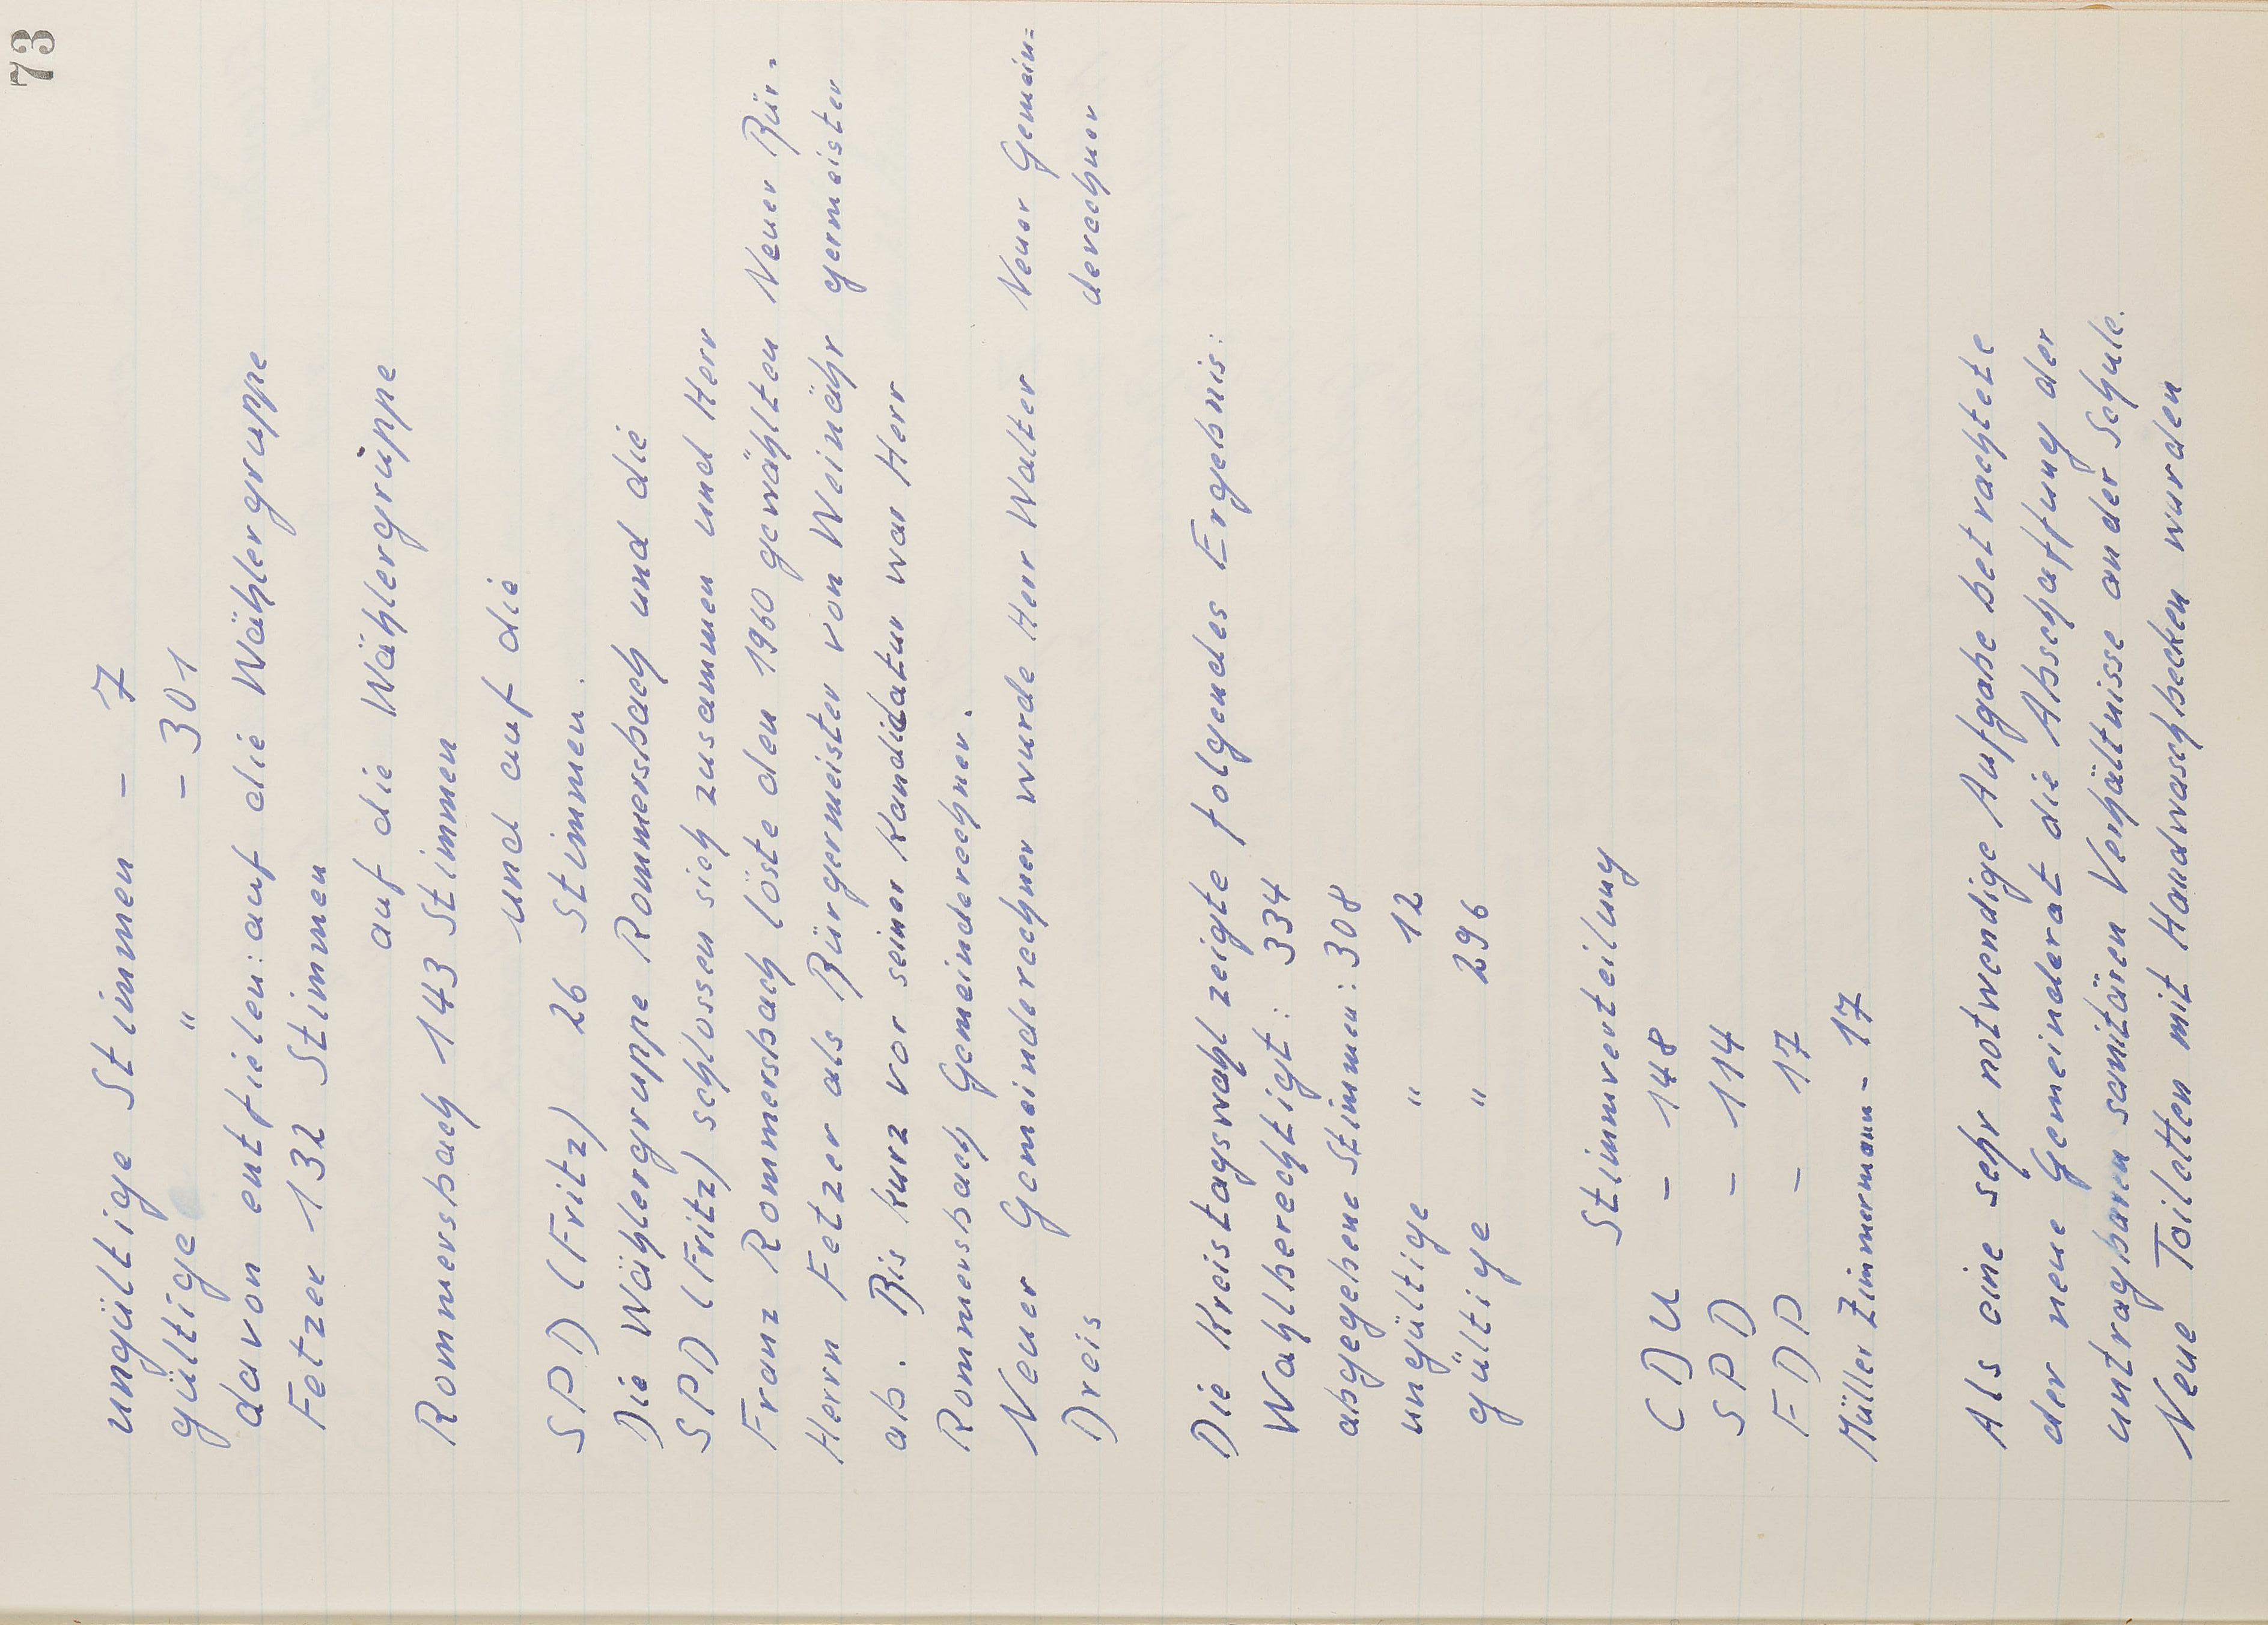 73
ungültige Stimmen - 7
gültige " - 301
davon entfielen: auf die Wählergruppe
Fetzer 132 Stimmen
auf die Wählergruppe
Rommersbach 143 Stimmen
und auf die
SPD (Fritz) 26 Stimmen.
Die Wählergruppe Rommersbach und die
SPD (Fritz) schlossen sich zusammen und Herr
Franz Rommersbach löste den 1960 gewählten
Neuer Bür-
Herrn Fetzer als Bürgermeister von Weinähr
germeister
ab. Bis kurz vor seiner Kandidatur war Herr
Rommersbach Gemeinderechner.
Neuer Gemeinderechner wurde Herr Walter
Neuer Gemein=
Dreis
derechner
Die Kreistagswahl zeigte folgendes Ergebnis:
Wahlberechtigt: 334
abgegebene Stimmen: 308
ungültige " 12
gültige " 296
Stimmverteilung
CDU - 148
SPD - 114
FDP - 17
Müller Zimmermann - 17
Als eine sehr notwendige Aufgabe betrachtete
der neue Gemeinderat die Abschaffung der
untragbaren sanitären Verhältnisse an der Schule.
Neue Toiletten mit Handwaschbecken wurden